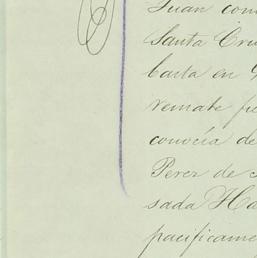 Juan con
Santa Cru
en
remate
conocía de
Perez de
sada Ha
pacificame